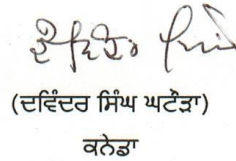 (ਦਵਿੰਦਰ ਸਿੰਘ ਘਟੌੜਾ)
ਕਨੇਡਾ